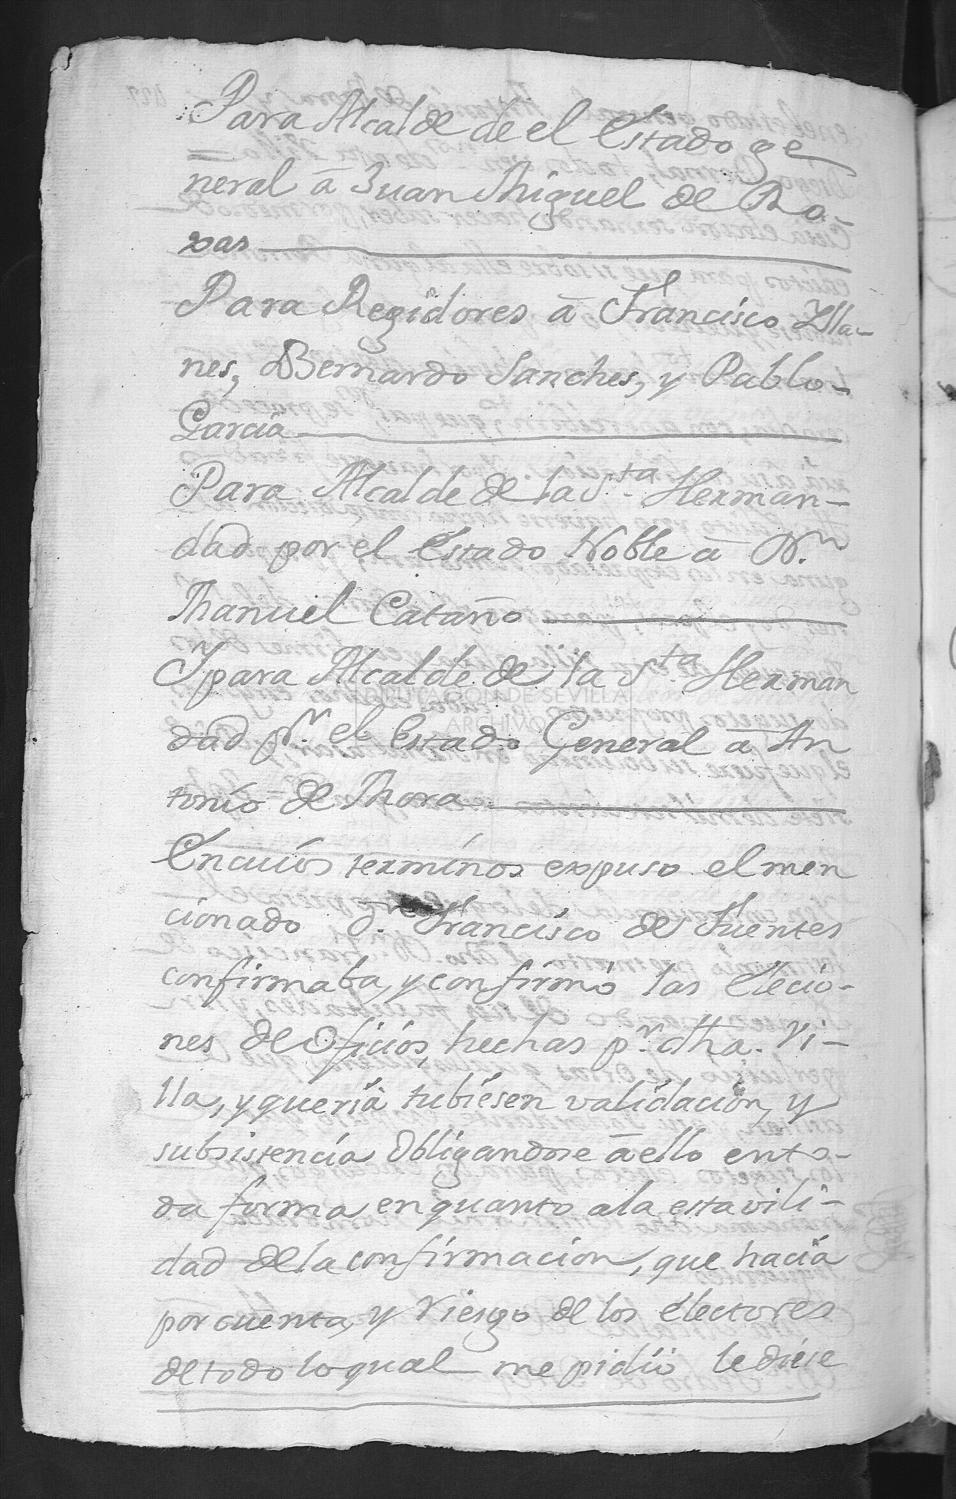 Para Alcalde de el Estado ge
neral â Juan Miguel de Ro-
xas
Para Regidores â Francisco Illa-
nes, Bernardo Sanches, y Pablo-
Garcia
Para Alcalde de la S.ta Herman-
dad por el Estado Noble â D.n
Manuel Cataño
Y para Alcalde de la S.ta Herman
dad p.r el Estado General â An
tonio de Mora
En cuios terminos expuso el men
cionado D. Francisco de Fuentes
confirmaba, y confirmó las Elecio-
nes de Oficios hechas p.r dha. Vi-
lla, y queria tubiesen validacion y
subsistencia Obligandose â ello en to-
da forma en quanto a la estavili-
dad de la confirmacion, que hacia
por cuenta, y riesgo de los electores
de todo lo qual me pidió le diese
DIPUTACION DE SEVILLA
ARCHIVO